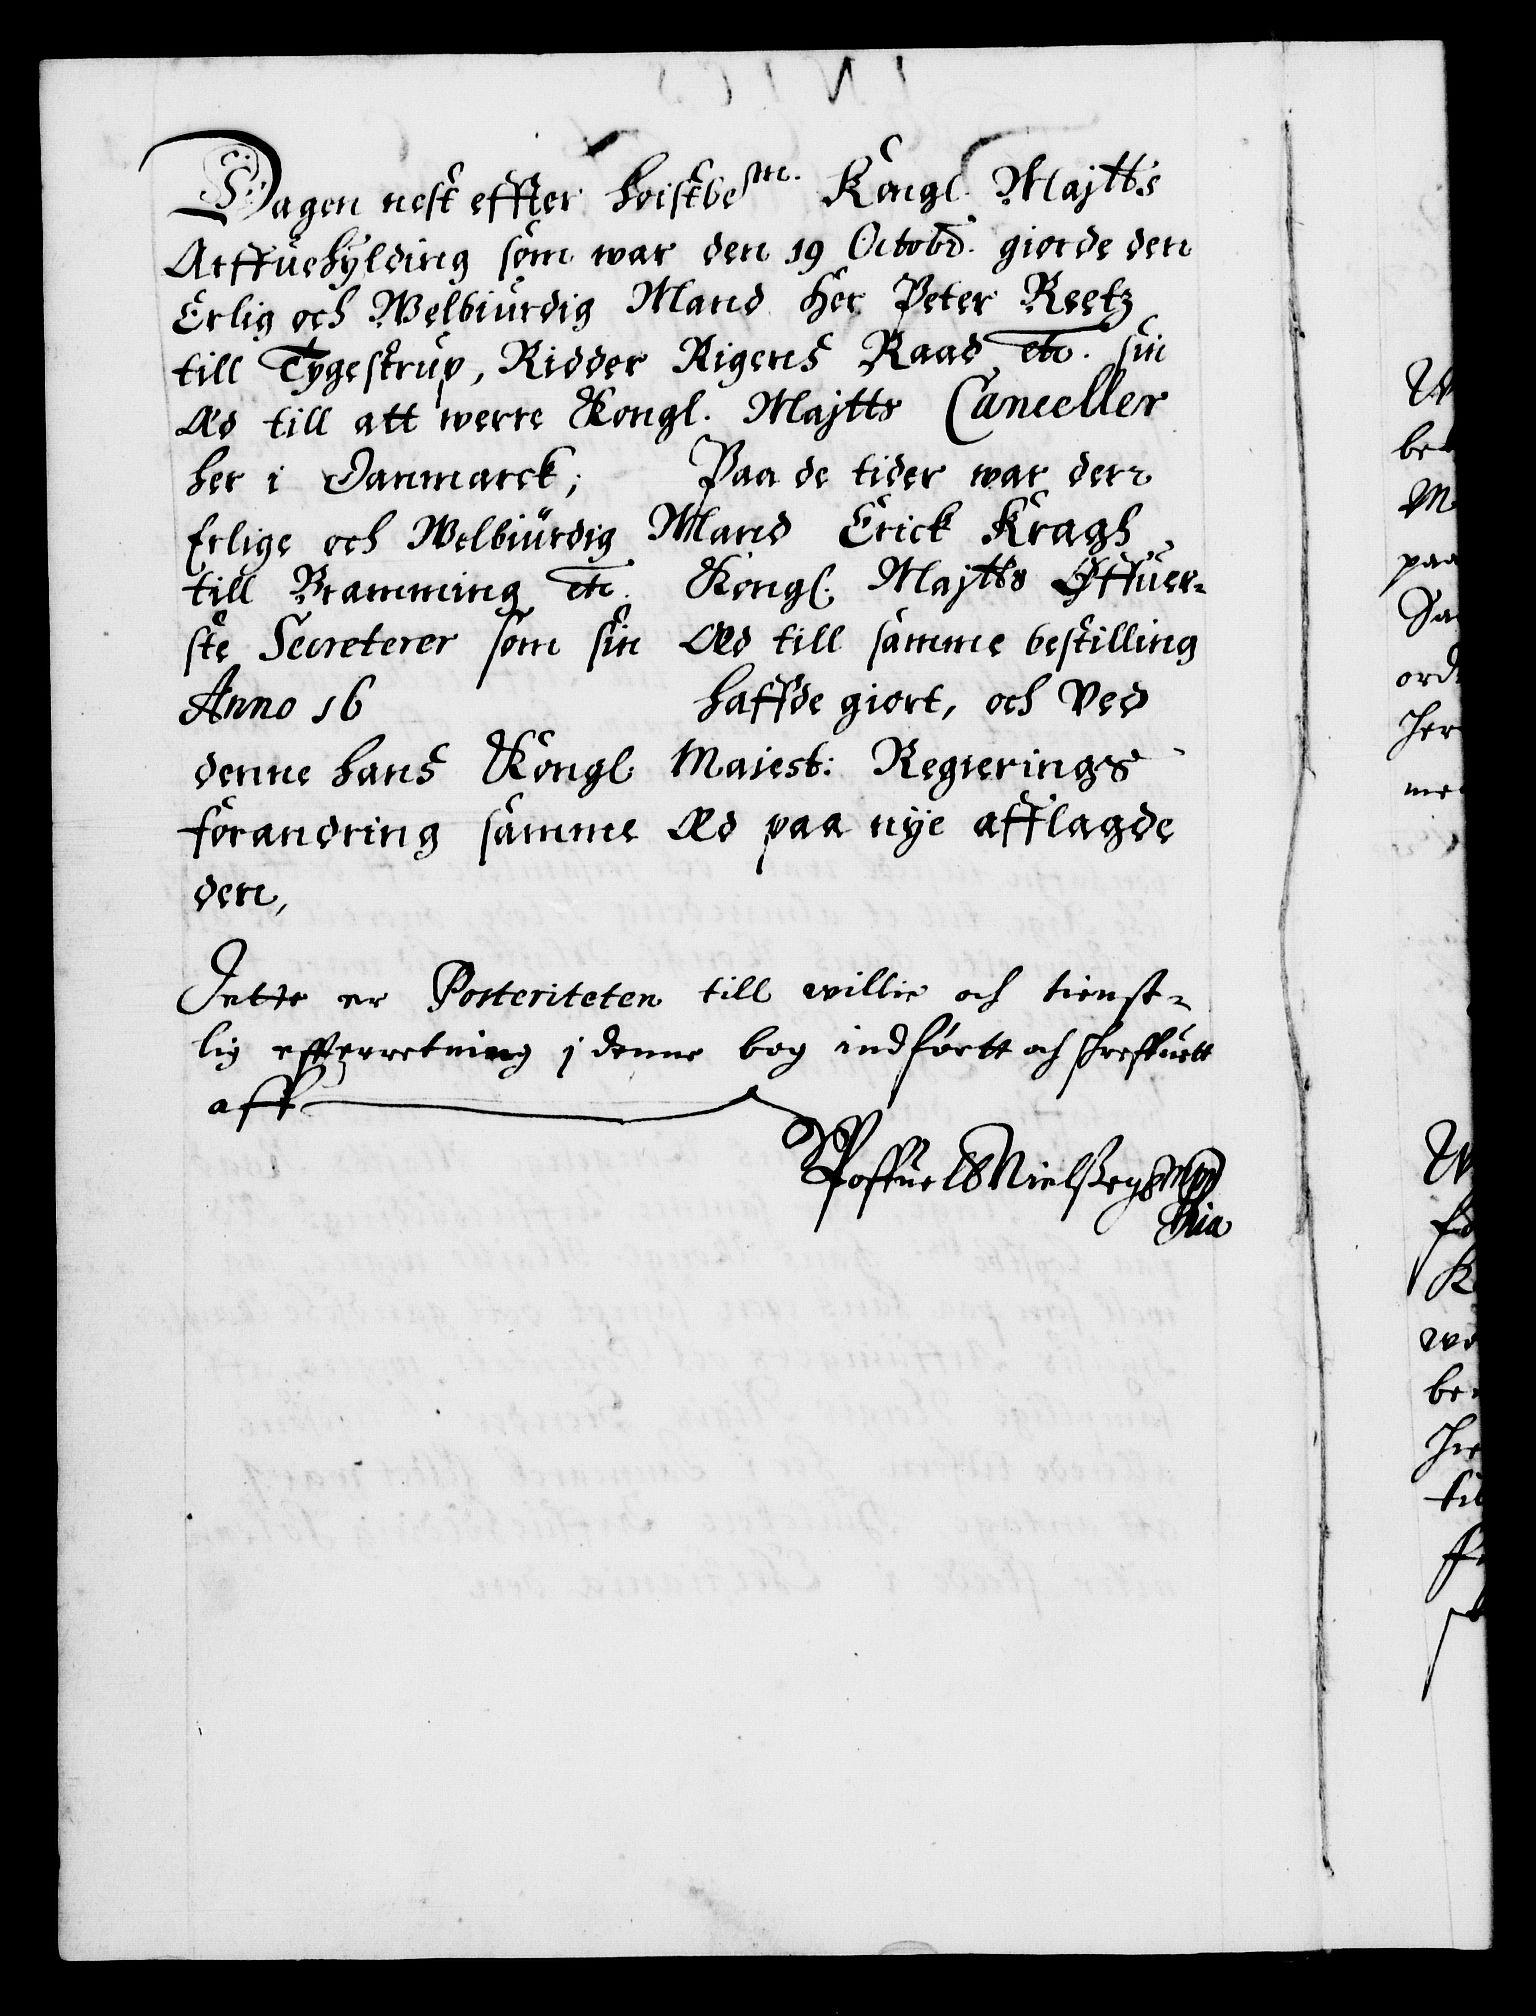 Dagen nest effter høistbe.mte Kongl. Majtts
Arffuehylding som war den 19 Octobr. giorde den
Erlig och Welbiurdig Mand Her Peter Reetz
till Tygestrup, Ridder Rigens Raad etc. sin
Æd till att werre Kongl. Majtts Canceller
her i Danmarck; Paa de tider war den
Erlige och Welbiurdig Mand Erick Kragh
till Bramming etc. Kongl. Majtts Øffuer-
ste Secreterer som sin Æd till samme bestilling
Anno 16 haffde giort, och Ved
denne hans Kongl. Majest: Regierings
forandring samme Æd paa nye afflagde
den,
Dette er Posteriteten till willie och tienst-
lig effterretning i denne bog indførtt och skreffuett
aff
Poffuel Nielßen